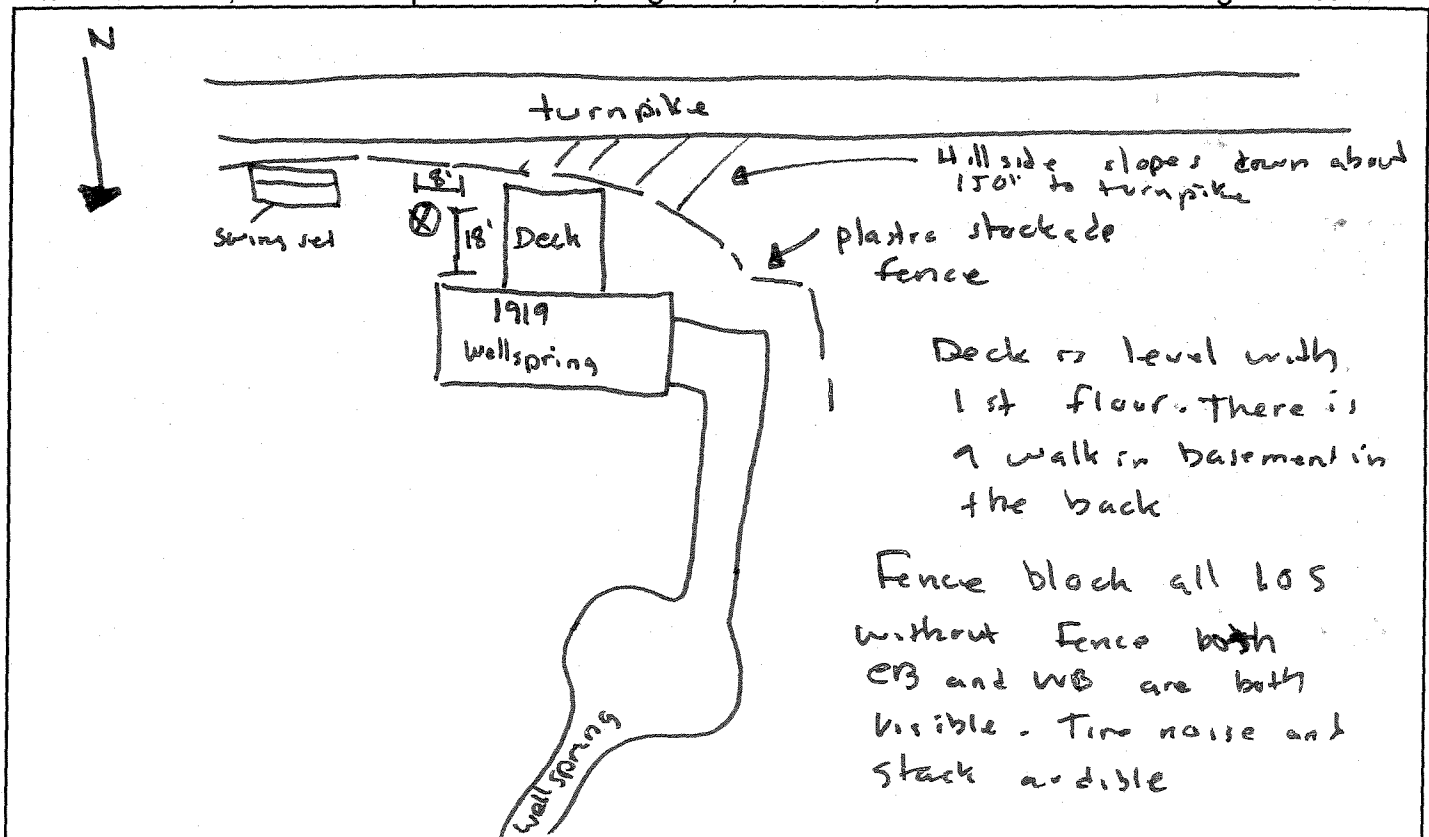 N
turnpike
Hillside slopes down about
150' to turnpike
8'
18'
Deck
swing set
plastic stockade
fence
1919
Wellspring
Deck is level with
1st floor. There is
a walk in basement in
the back
Fence block all LOS
without Fence both
EB and WB are both
visible. Tire noise and
stack audible
Wellspring